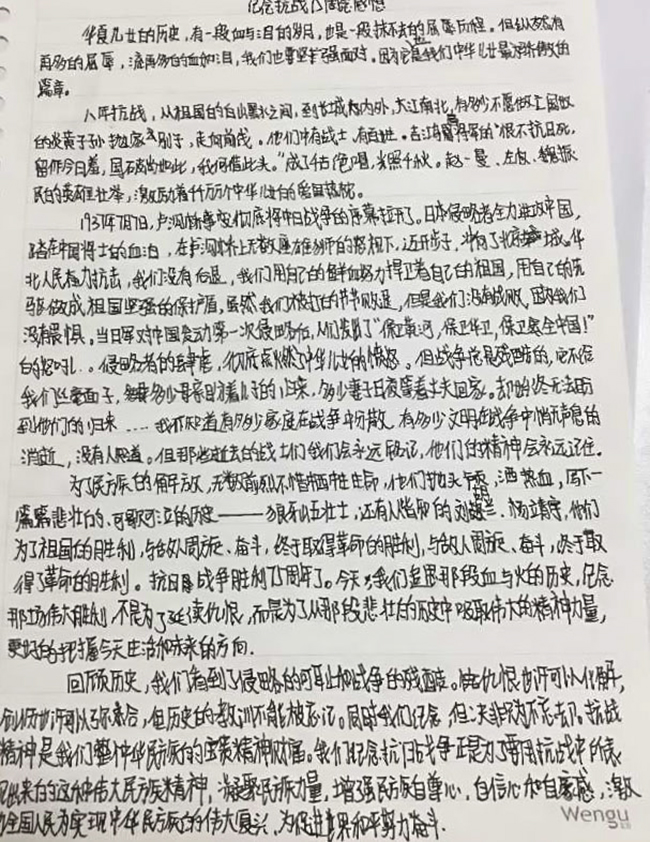 纪念抗战75周年感想
华夏儿女的历史，有一段血与泪的岁月，也是一段抹不去的屈辱历程。但纵然有
再多的屈辱，流再多的血和泪，我们也要坚强面对。因为它是我们中华儿女最
篇章。
八年抗战，从祖国的白山黑水之间，到长城内外，大江南北，有多少不愿做亡国奴
的炎黄子孙抛家别子，走向前线。他们中有战士，有百姓。吉鸿昌将军的"恨不抗日死，
留作今日羞，国破尚如此，我何惜此头。"成了千古绝唱，光照千秋。赵一曼、左权、魏振
民的英雄壮举，激励着千千万万个中华儿女的爱国热忱。
1937年7月7日，卢沟桥事变彻底将中日战争的序幕拉开了。日本侵略者全力进攻中国，
踏在中国将士的血泊，在卢沟桥上无数座雄狮的怒视下，迈开步子，北京城。华
北人民极力抗击，我们没有后退，我们用自己的鲜血努力捍卫着自己的祖国，用自己的
躯做成祖国坚强的保护盾，虽然我们被打的节节败退，但是我们没有战败，因为我们
没有畏惧。当日军对中国发动第一次侵略后，人们发出了"保卫黄河，保卫华北，保卫全中国！"
的怒吼..。侵略者的肆虐，彻底点燃了中华儿女的愤怒。但战争总是残酷的，它不给
我们丝毫面子，多少母亲盼着儿子的归来，多少妻子日夜望着丈夫回家。却始终无法盼
到他们的归来……我不知道有多少家庭在战争中分散，有多少文明在战争中悄无声息的
消逝，没有人知道。但那些逝去的战士们我们会永远铭记，他们的精神会永远记住。
为了民族的解放，无数前烈不惜牺牲生命，他们抛头颅，洒热血，写下一
篇篇悲壮的、可歌可泣的历史——狼牙山五壮士，还有人皆知的刘胡兰、杨靖宇，他们
为了祖国的胜利，与敌人周旋、奋斗，终于取得革命的胜利，与敌人周旋、奋斗，终于取
得了革命的胜利。抗日战争胜利75周年了。今天，我们重温那段血与火的历史，纪念
那场伟大胜利，不是为了延续仇恨，而是为了从那段悲壮的历史中吸取伟大的精神力量，
更好的把握今天生活和未来的方向。
回顾历史，我们看到了侵略的可耻和战争的残酷。仇恨也许可以化解，
创伤也许可以弥合，但历史的教训不能被忘记。同时我们纪念，但决非为不忘却。抗战
精神是我们整个中华民族的宝贵精神财富。我们纪念抗日战争正是为了要用抗战中所表
现出来的这种伟大民族精神，凝聚民族力量，增强民族自尊心，自信心和自豪感，激
励全国人民为实现中华民族的伟大复兴，为促进世界和平努力奋斗.
Wengu